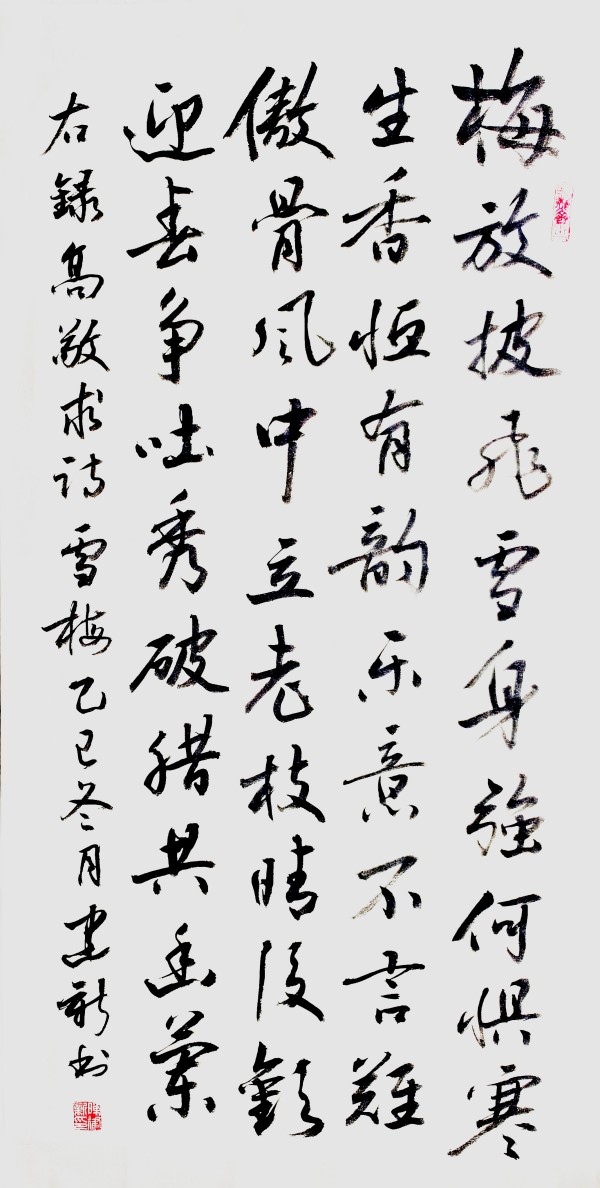 梅放披飛雪身強何惧寒
生香恒有韵乐意不言難
傲骨风中立老枝晴後歡
迎春争吐秀破腊共幽蘭
右録高敬求诗雪梅乙巳冬月建新书